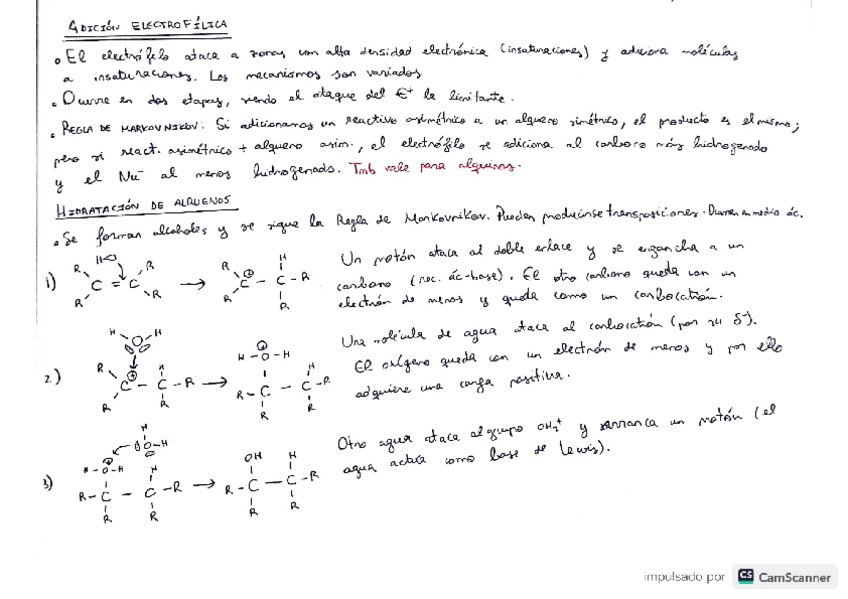 ADICIÓN ELECTROFÍLICA
• El electrófilo ataca a zonas con alta densidad electrónica (insaturaciones) y adiciona moléculas
a insaturaciones. Los mecanismos son variados
• Ocurre en dos etapas, siendo el ataque del E+ la limitante.
• REGLA DE MARKOVNIKOV: Si adicionamos un reactivo asimétrico a un alqueno simétrico, el producto es el mismo;
pero si react. asimétrico + alqueno asim., el electrófilo se adiciona al carbono más hidrogenado
y el Nu- al menos hidrogenado. Tmb vale para alquinos.
HIDRATACIÓN DE ALQUENOS
• Se forman alcoholes y se sigue la Regla de Markovnikov. Pueden producirse transposiciones. Ocurren en medio ác.
1)
Un protón ataca al doble enlace y se engancha a un
carbono (rec. ác-base). El otro carbono queda con un
electrón de menos y queda como un carbocatión.
2)
Una molécula de agua ataca al carbocatión (por su δ-).
El oxígeno queda con un electrón de menos y por ello
adquiere una carga positiva.
3)
Otro agua ataca al grupo OH2+ y arranca un protón (el
agua actúa como base de Lewis).
impulsado por CS CamScanner